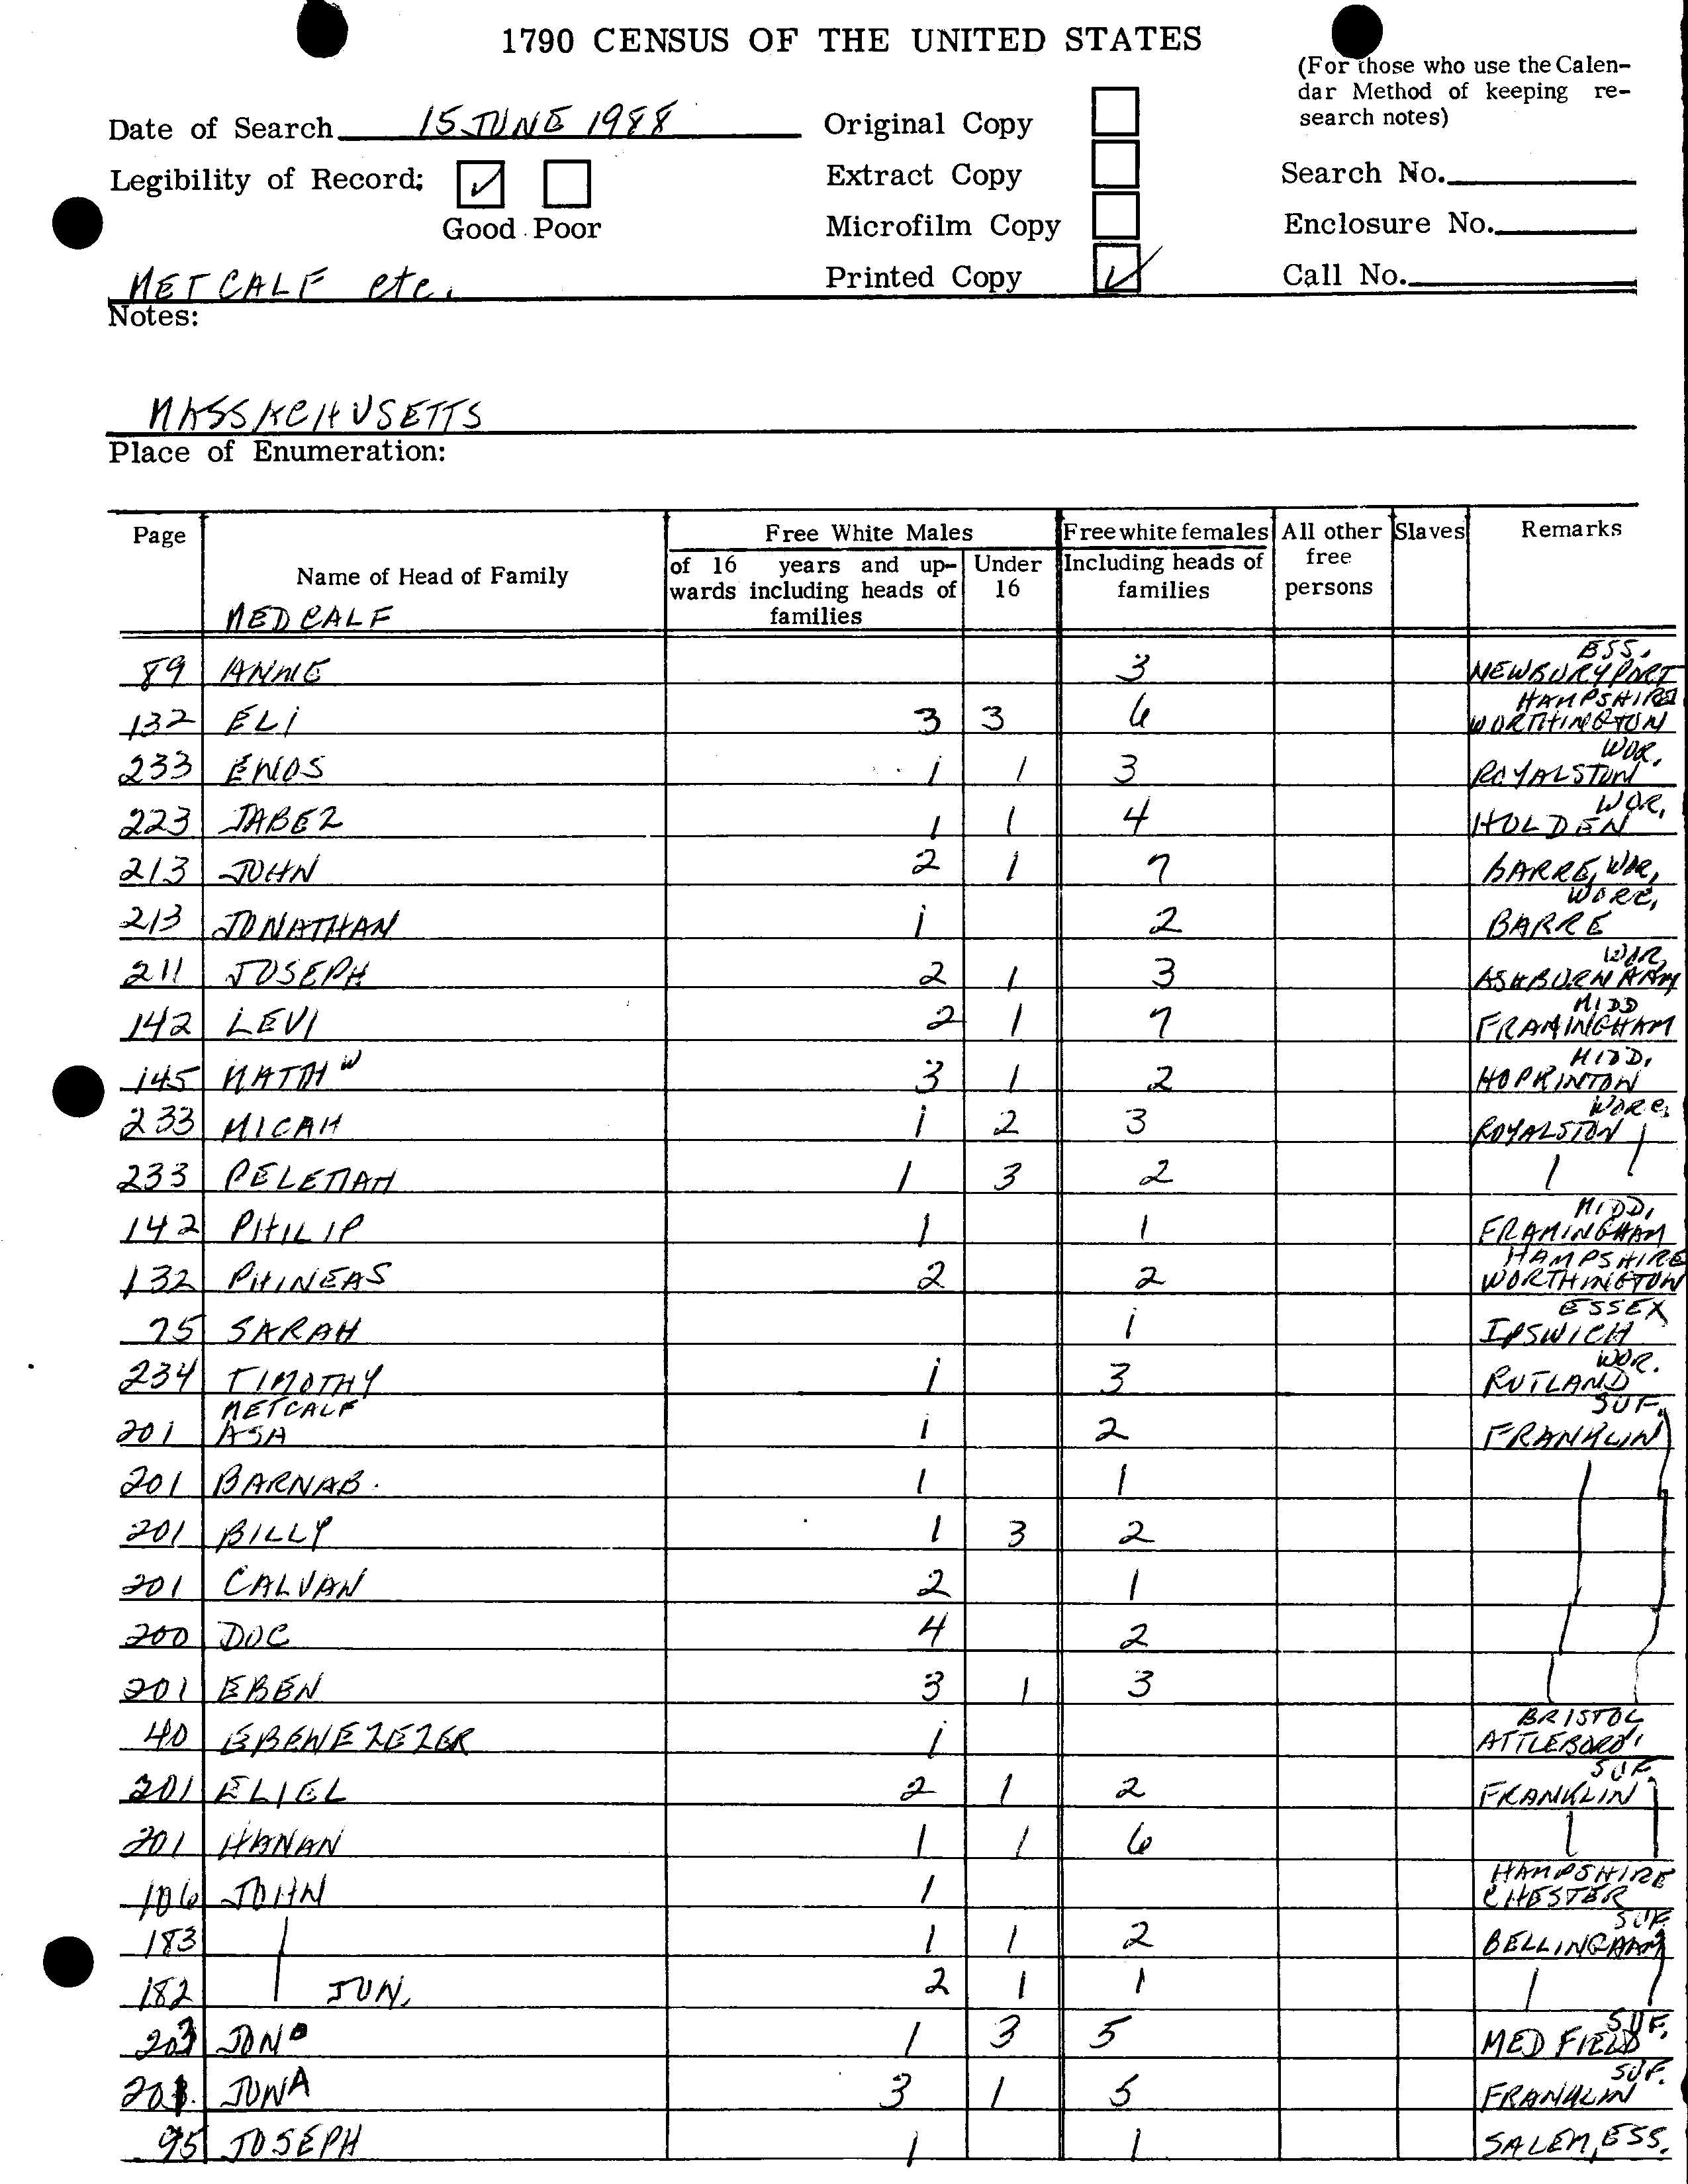 1790 CENSUS OF THE UNITED STATES
(For those who use the Calen-
dar Method of keeping re-
search notes)
Date of Search 15 JUNE 1988
Original Copy
Legibility of Record:
Good Poor
Extract Copy
Search No.
Microfilm Copy
Enclosure No.
METCALF etc.
Printed Copy
Call No.
Notes:
MASSACHUSETTS
Place of Enumeration:
Page
Name of Head of Family
MEDCALF
Free White Males
of 16 years and up-
wards including heads of
families
Under
16
Free white females
Including heads of
families
All other
free
persons
Slaves
Remarks
89 ANNIE 3 ESS. NEWBURYPORT
132 ELI 3 3 6 HAMPSHIRE WORTHINGTON
233 ENOS 1 1 3 WOR. ROYALSTON
223 JABEZ 1 1 4 WOR. HOLDEN
213 JOHN 2 1 7 BARRE, WOR.
213 JONATHAN 1 2 WORC. BARRE
211 JOSEPH 2 1 3 WOR. ASHBURNHAM
142 LEVI 2 1 7 MIDD FRAMINGHAM
145 MATHW 3 1 2 MIDD. HOPKINTON
233 MICAH 1 2 3 WORC. ROYALSTON
233 PELETIAH 1 3 2
142 PHILIP 1 1 MIDD. FRAMINGHAM
132 PHINEAS 2 2 HAMPSHIRE WORTHINGTON
75 SARAH 1 ESSEX IPSWICH
234 TIMOTHY 1 3 WOR. RUTLAND
METCALF
201 ASA 1 2 SUF. FRANKLIN
201 BARNAB. 1 1
201 BILLY 1 3 2
201 CALVAN 2 1
200 DOC 4 2
201 EBEN 3 1 3
40 EBENEZEZER 1 BRISTOL ATTLEBORO
201 ELIEL 2 1 2 SUF. FRANKLIN
201 HANAN 1 1 6
106 JOHN 1 HAMPSHIRE CHESTER
183 1 1 2 SUF. BELLINGHAM
182 JUN. 2 1 1
203 JONO 1 3 5 SUF. MEDFIELD
201. JONA 3 1 5 SUF. FRANKLIN
95 JOSEPH 1 1 SALEM, ESS.